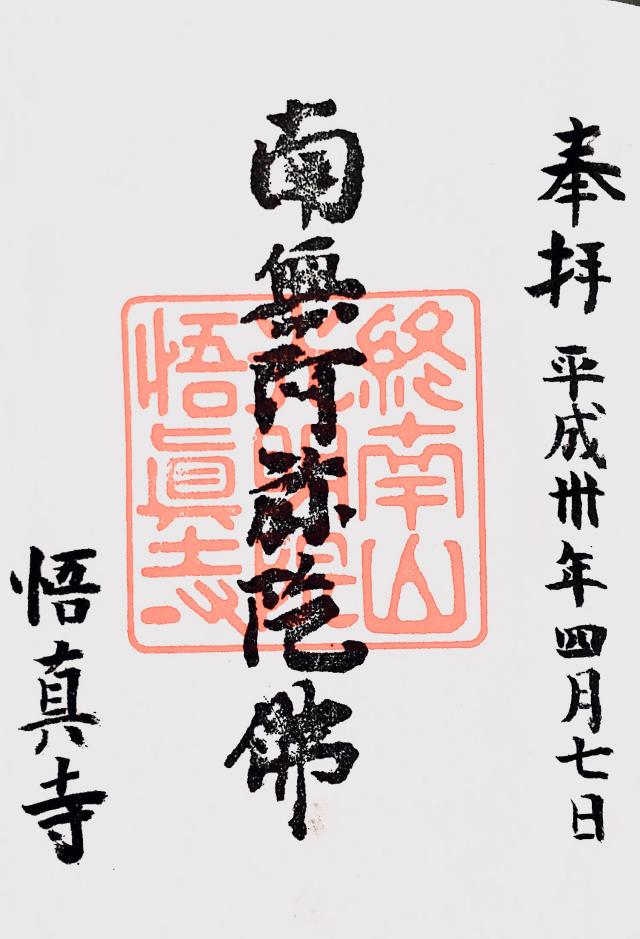 奉拝 平成卅年四月七日
南無阿弥陀佛
終南山
悟眞寺
悟真寺